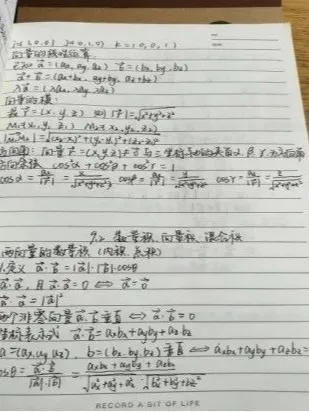 i=(1,0,0) j=(0,1,0) k=(0,0,1)
向量的线性运算
已知 a=(ax, ay, az) b=(bx, by, bz)
a±b=(ax±bx, ay±by, az±bz)
λa=(λax, λay, λaz)
向量的模:
设 r=(x, y, z) 则 |r|=√x²+y²+z²
M₁(x₁, y₁, z₁) M₂(x₂, y₂, z₂)
|M₁M₂|=√(x₂-x₁)²+(y₂-y₁)²+(z₂-z₁)²
向量 r=(x, y, z)≠0 与三坐标轴的夹角 α, β, γ 为方向角
方向余弦 cos²α+cos²β+cos²γ=1
cosα=ax/|r|=x/√x²+y²+z² cosβ=ay/|r|=y/√x²+y²+z² cosγ=az/|r|=z/√x²+y²+z²
9.2 数量积 向量积 混合积
两向量的数量积 (内积, 点积)
1.定义 a·b=|a|·|b|·cosθ
a·a, 且 a·a=0 ⇔ a=0
a·a=|a|²
两个非零向量 a, b 垂直 ⇔ a·b=0
坐标表示式 a·b=axbx+ayby+azbz
a=(ax, ay, az), b=(bx, by, bz) 垂直 ⇔ axbx+ayby+azbz=
cosθ=a·b/|a|·|b|=axbx+ayby+azbz/√ax²+ay²+az²·√bx²+by²+bz²
RECORD A BIT OF LIFE